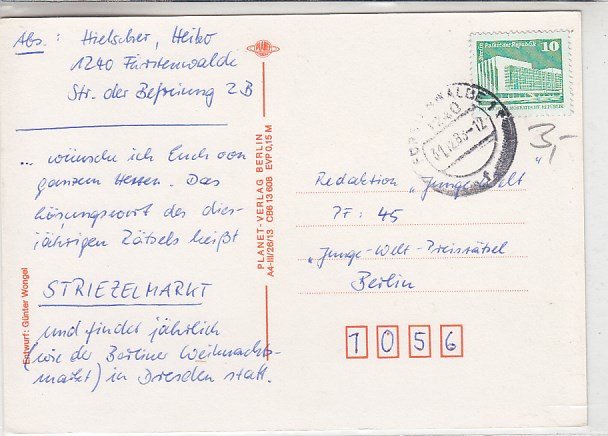 Abs.: Hielscher, Heiko
1240 Fürstenwalde
Str. der Befreiung 2B
... wünsche ich Euch von
ganzem Herzen. Das
Lösungswort des dies-
jährigen Rätsels heißt
STRIEZELMARKT
und findet jährlich
(wie der Berliner Weihnachts-
markt) in Dresden statt.
Entwurf: Günter Wongel
PLANET
PLANET-VERLAG BERLIN
A4-III/26/13 CB613608 EVP 0,15 M
Berlin Palast der Republik
10
DEUTSCHE DEMOKRATISCHE REPUBLIK
FÜRSTENWALDE 1
1240
3,-
Redaktion „Junge Welt"
PF: 45
„Junge-Welt-Preisrätsel"
Berlin
1056